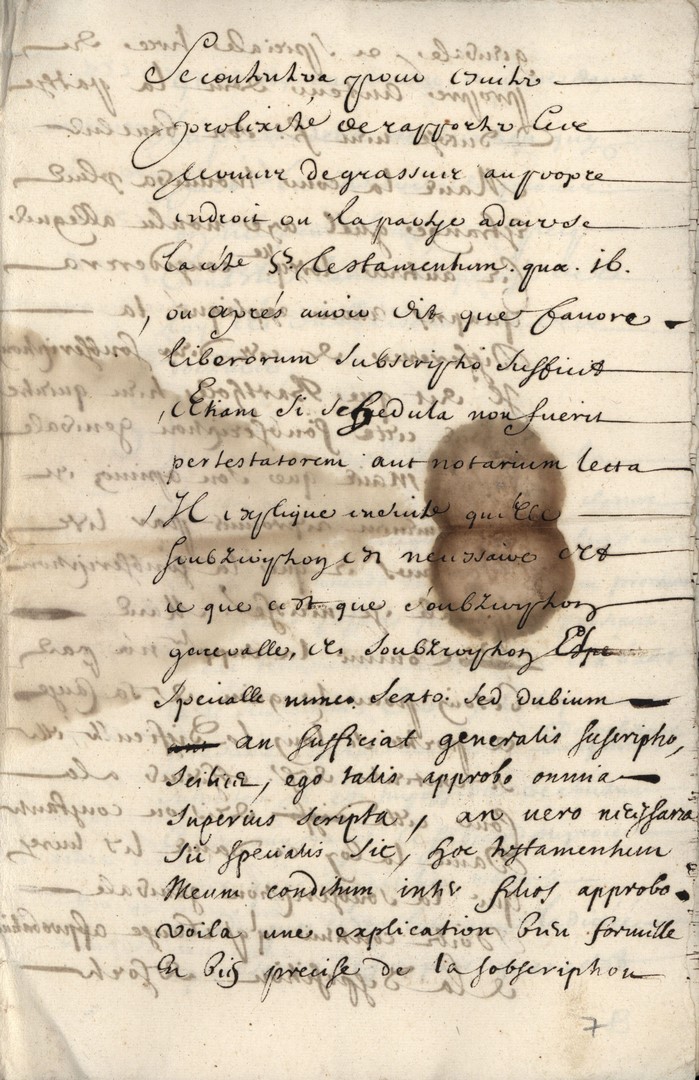 Se contentera pour euiter
prolixité de rapporter icy
de grassuir au propre
endroit ou la partye aduerse
la cite §. testamentum. quæ. 16.
, ou aprés auoir dit que fauore
liberorum subscriptio sufficit
, Etiam si schedula non fuerit
per testatorem aut notarium lecta
, Il explique en suite quelle
soubzcription est necessaire et
ce que cest que soubzcription
generalle, et soubzcription
specialle numero sexto. sed dubium
an sufficiat generalis suscriptio,
scilicet, ego talis approbo omnia
superius scripta, an vero necessaria
sit specialis sic, hoc testamentum
Meum conditum inter filios approbo.
voila une explication bien formelle
En bien precise de la sobscription
7